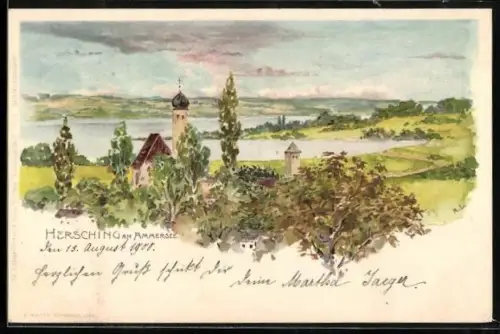 HERSCHING AM AMMERSEE
Den 15. August 1900.
Herzlichen Gruß schickt Dir
Deine Martha Jaeger.